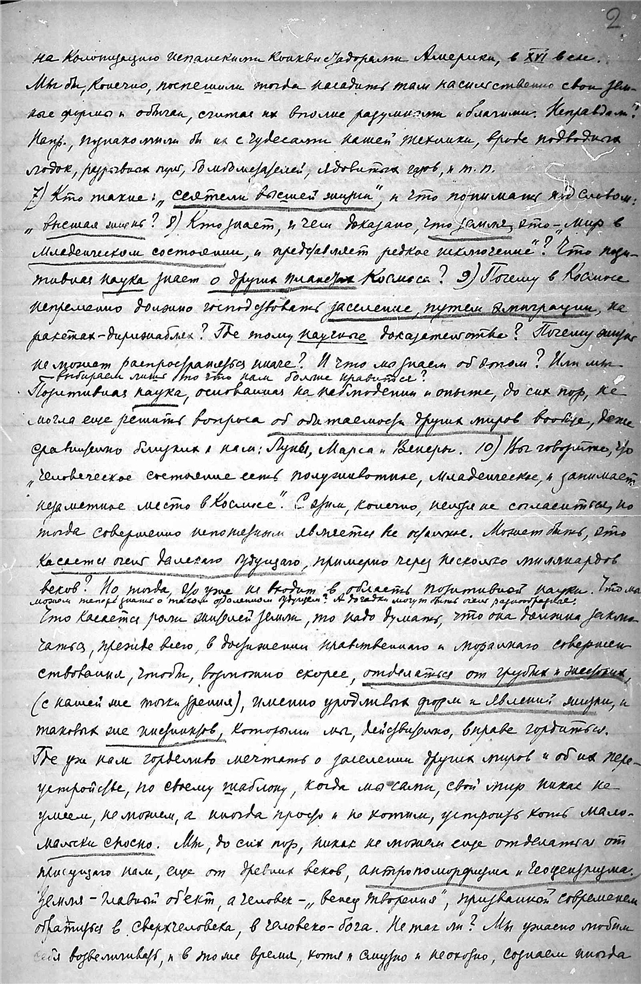 2
на колонизацию испанскими конквистадорами Америки, в XVI веке.
Мы бы, конечно, поспешили тогда насадить там насильственно свои зем-
ные формы и обычаи, считая их вполне разумными и благими. Неправда ли?
Напр., познакомили бы их с чудесами нашей техники, вроде подводных
лодок, разрывных пуль, бомбометателей, ядовитых газов, и т.п.
7) Кто такие: „сеятели высшей жизни", и что понимать под словом:
„высшая жизнь"? 8) Кто знает, и чем доказано, что земля, это - мир в
младенческом состоянии, и представляет редкое исключение"? Что пози-
тивная наука знает о других планетах Космоса? 9) Почему в Космосе
непременно должно господствовать заселение, путем эмиграции, на
ракетах-дирижаблях? Где тому научные доказательства? Почему жизнь
не может распространяться иначе? И что мы знаем об этом? Или мы
выбираем лишь то что нам больше нравится?
Позитивная наука, основанная на наблюдении и опыте, до сих пор, не
могла еще решить вопроса об обитаемости других миров вообще, даже
сравнительно близких к нам: Луны, Марса и Венеры. 10) Вы говорите, что
„человеческое состояние есть полуживотное, младенческое, и занимает
незаметное место в Космосе". С этим, конечно, нельзя не согласиться, но
тогда совершенно непонятным является не
Может быть, это
касается очень далекого будущего, примерно через несколько миллиардов
веков? Но тогда, это уже не входит в область позитивной науки. Что мы
можем теперь знать о таком отдаленном будущем? А догадки могут быть очень разнообразные.
Что касается роли жителей земли, то надо думать, что она должна заклю-
чаться, прежде всего, в достижении нравственного и морального совершен-
ствования, чтобы, возможно скорее, отделаться от грубых и жестоких,
(с нашей же точки зрения), именно уродливых форм и явлений жизни, и
таковых же инстинктов, которыми мы, действительно, вправе гордиться.
Где уж нам горделиво мечтать о заселении других миров и об их пере-
устройстве, по своему шаблону, когда мы сами, свой мир никак не
умеем, не можем, а иногда просто и не хотим, устроить хоть мало-
мальски сносно. Мы, до сих пор, никак не можем еще отделаться от
присущего нам, еще от древних веков, антропоморфизма и геоцентризма.
Земля - главный объект, а человек - „венец творения", призванный современем
обратиться в сверхчеловека, в человеко-бога. Не так ли? Мы ужасно любим
себя возвеличивать, и в то же время, хотя и смутно и неохотно, сознаем иногда